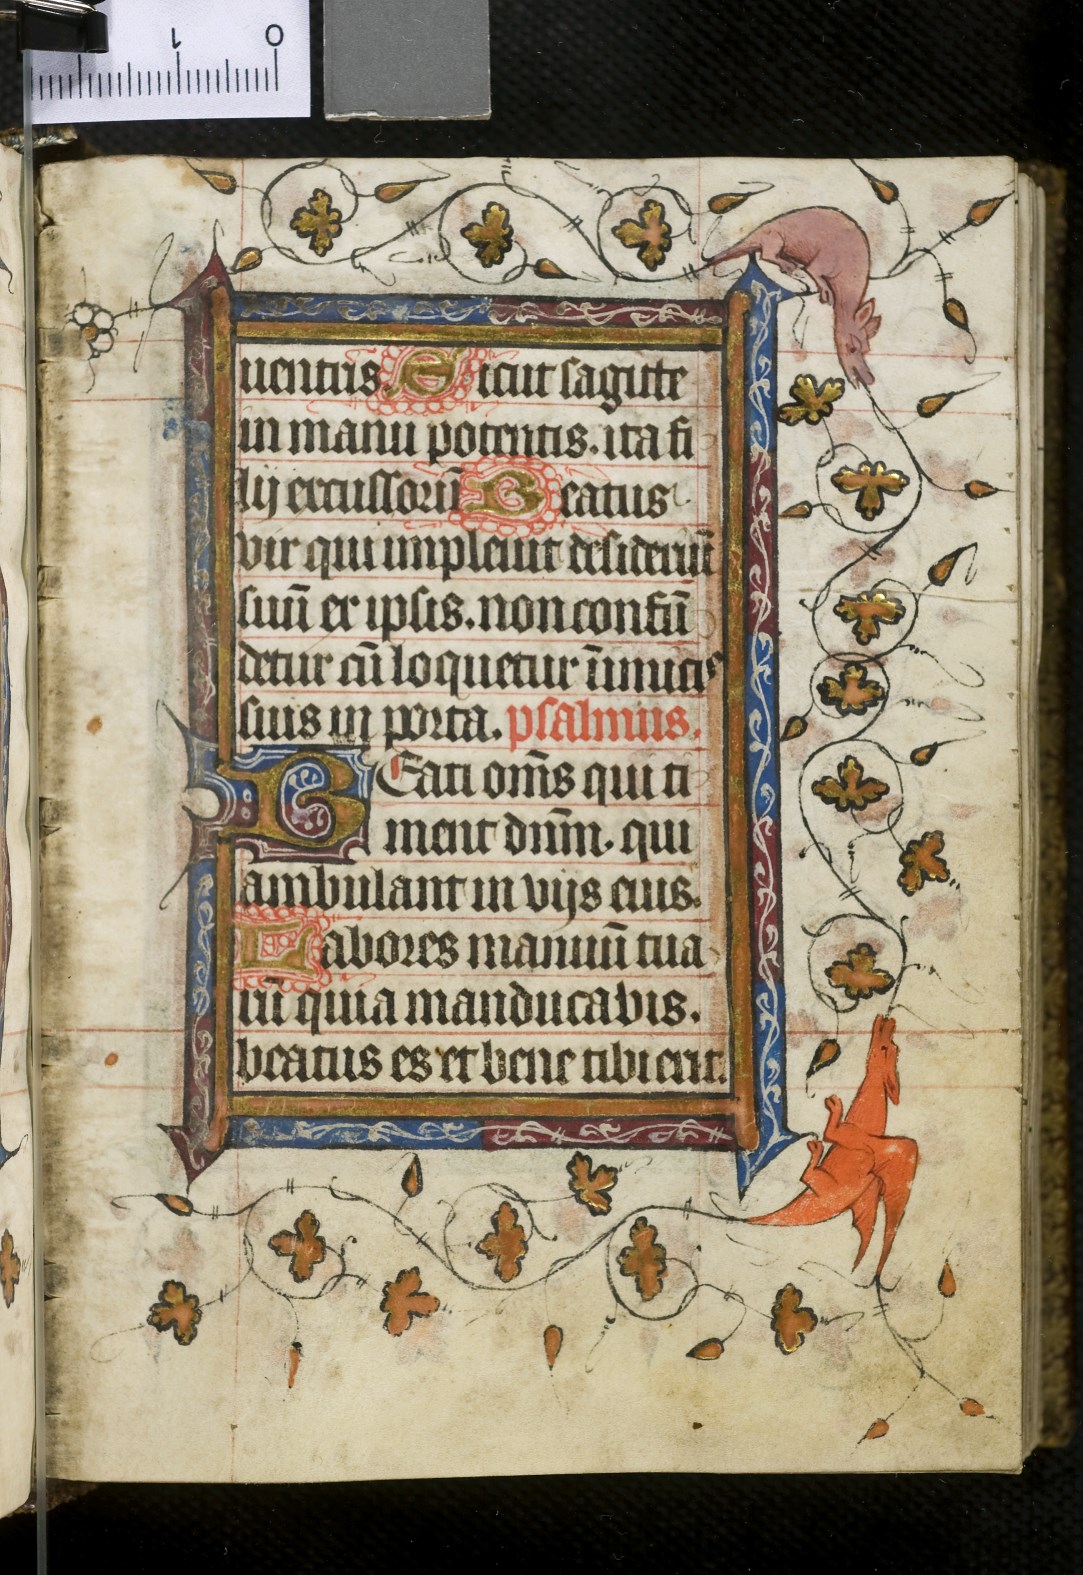 1 0
uentris Sicut sagitte
in manu potentis. ita fi
lij excussorū Beatus
vir qui impleuit desideriū
suū ex ipsis. non confū
detur cū loquetur inimicis
suis in porta. psalmus.
Beati om̄s qui ti
ment dn̄m. qui
ambulant in vijs eius.
Labores manuū tua
rū quia manducabis.
beatus es et bene tibi erit.